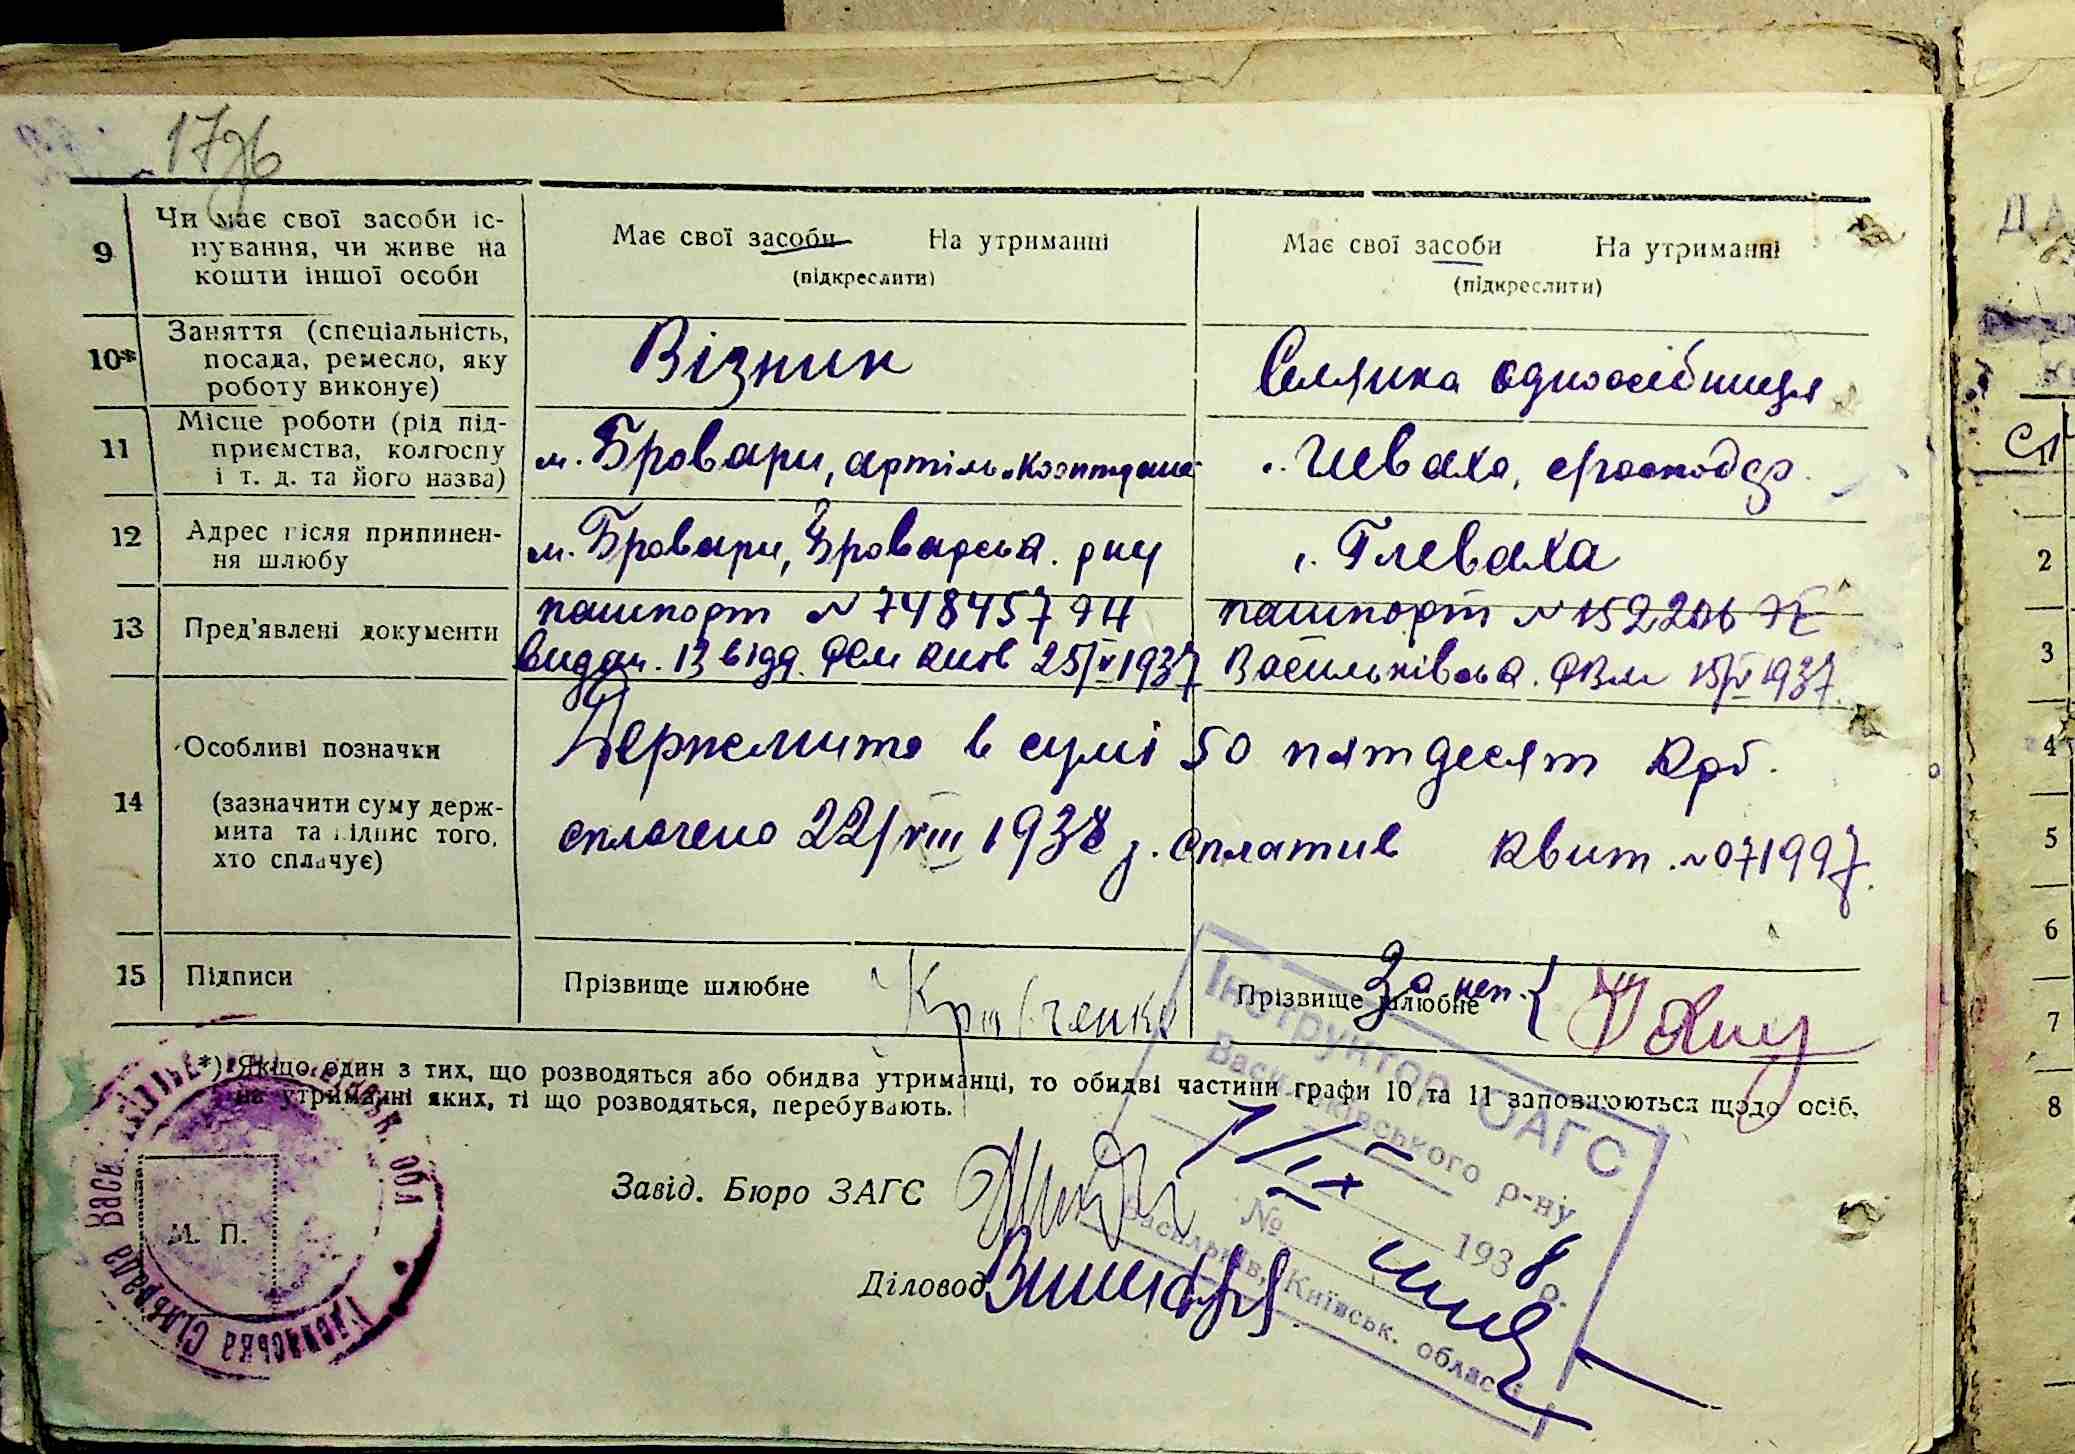 9
Чи має свої засоби іс-
нування, чи живе на
кошти іншої особи
Має свої засоби На утриманні
(підкреслити)
Має свої засоби На утриманні
(підкреслити)
10*
Заняття (спеціальність,
посада, ремесло, яку
роботу виконує)
Візник
Селянка одноосібниця
11
Місце роботи (рід під-
приємства, колгоспу
і т. д. та його назва)
м. Бровари, артіль
12
Адрес після припинен-
ня шлюбу
м. Бровари, Броварськ. рну
с. Глеваха
13
Пред'явлені документи
пашпорт № 748457
видан. 13 відд. Київ 25/V 1937
пашпорт №
Васильківськ. 15/V 1937
14
Особливі позначки
(зазначити суму держ-
мита та підпис того,
хто сплачує)
Держмито в сумі 50 пятдесят крб.
сплачено 22/VIII 1938 р. сплатив квит. №071997
15
Підписи
Прізвище шлюбне
Кравченко
Прізвище шлюбне
За неп.
*) Якщо один з тих, що розводяться або обидва утриманці, то обидві частини графи 10 та 11 заповнюються щодо осіб,
на утриманні яких, ті що розводяться, перебувають.
Завід. Бюро ЗАГС
Діловод
М. П.
Інструктор ЗАГС
Васильківського р-ну
7/IX
№ 1938 р.
Васильків, Київськ. області
2
3
4
5
6
7
8